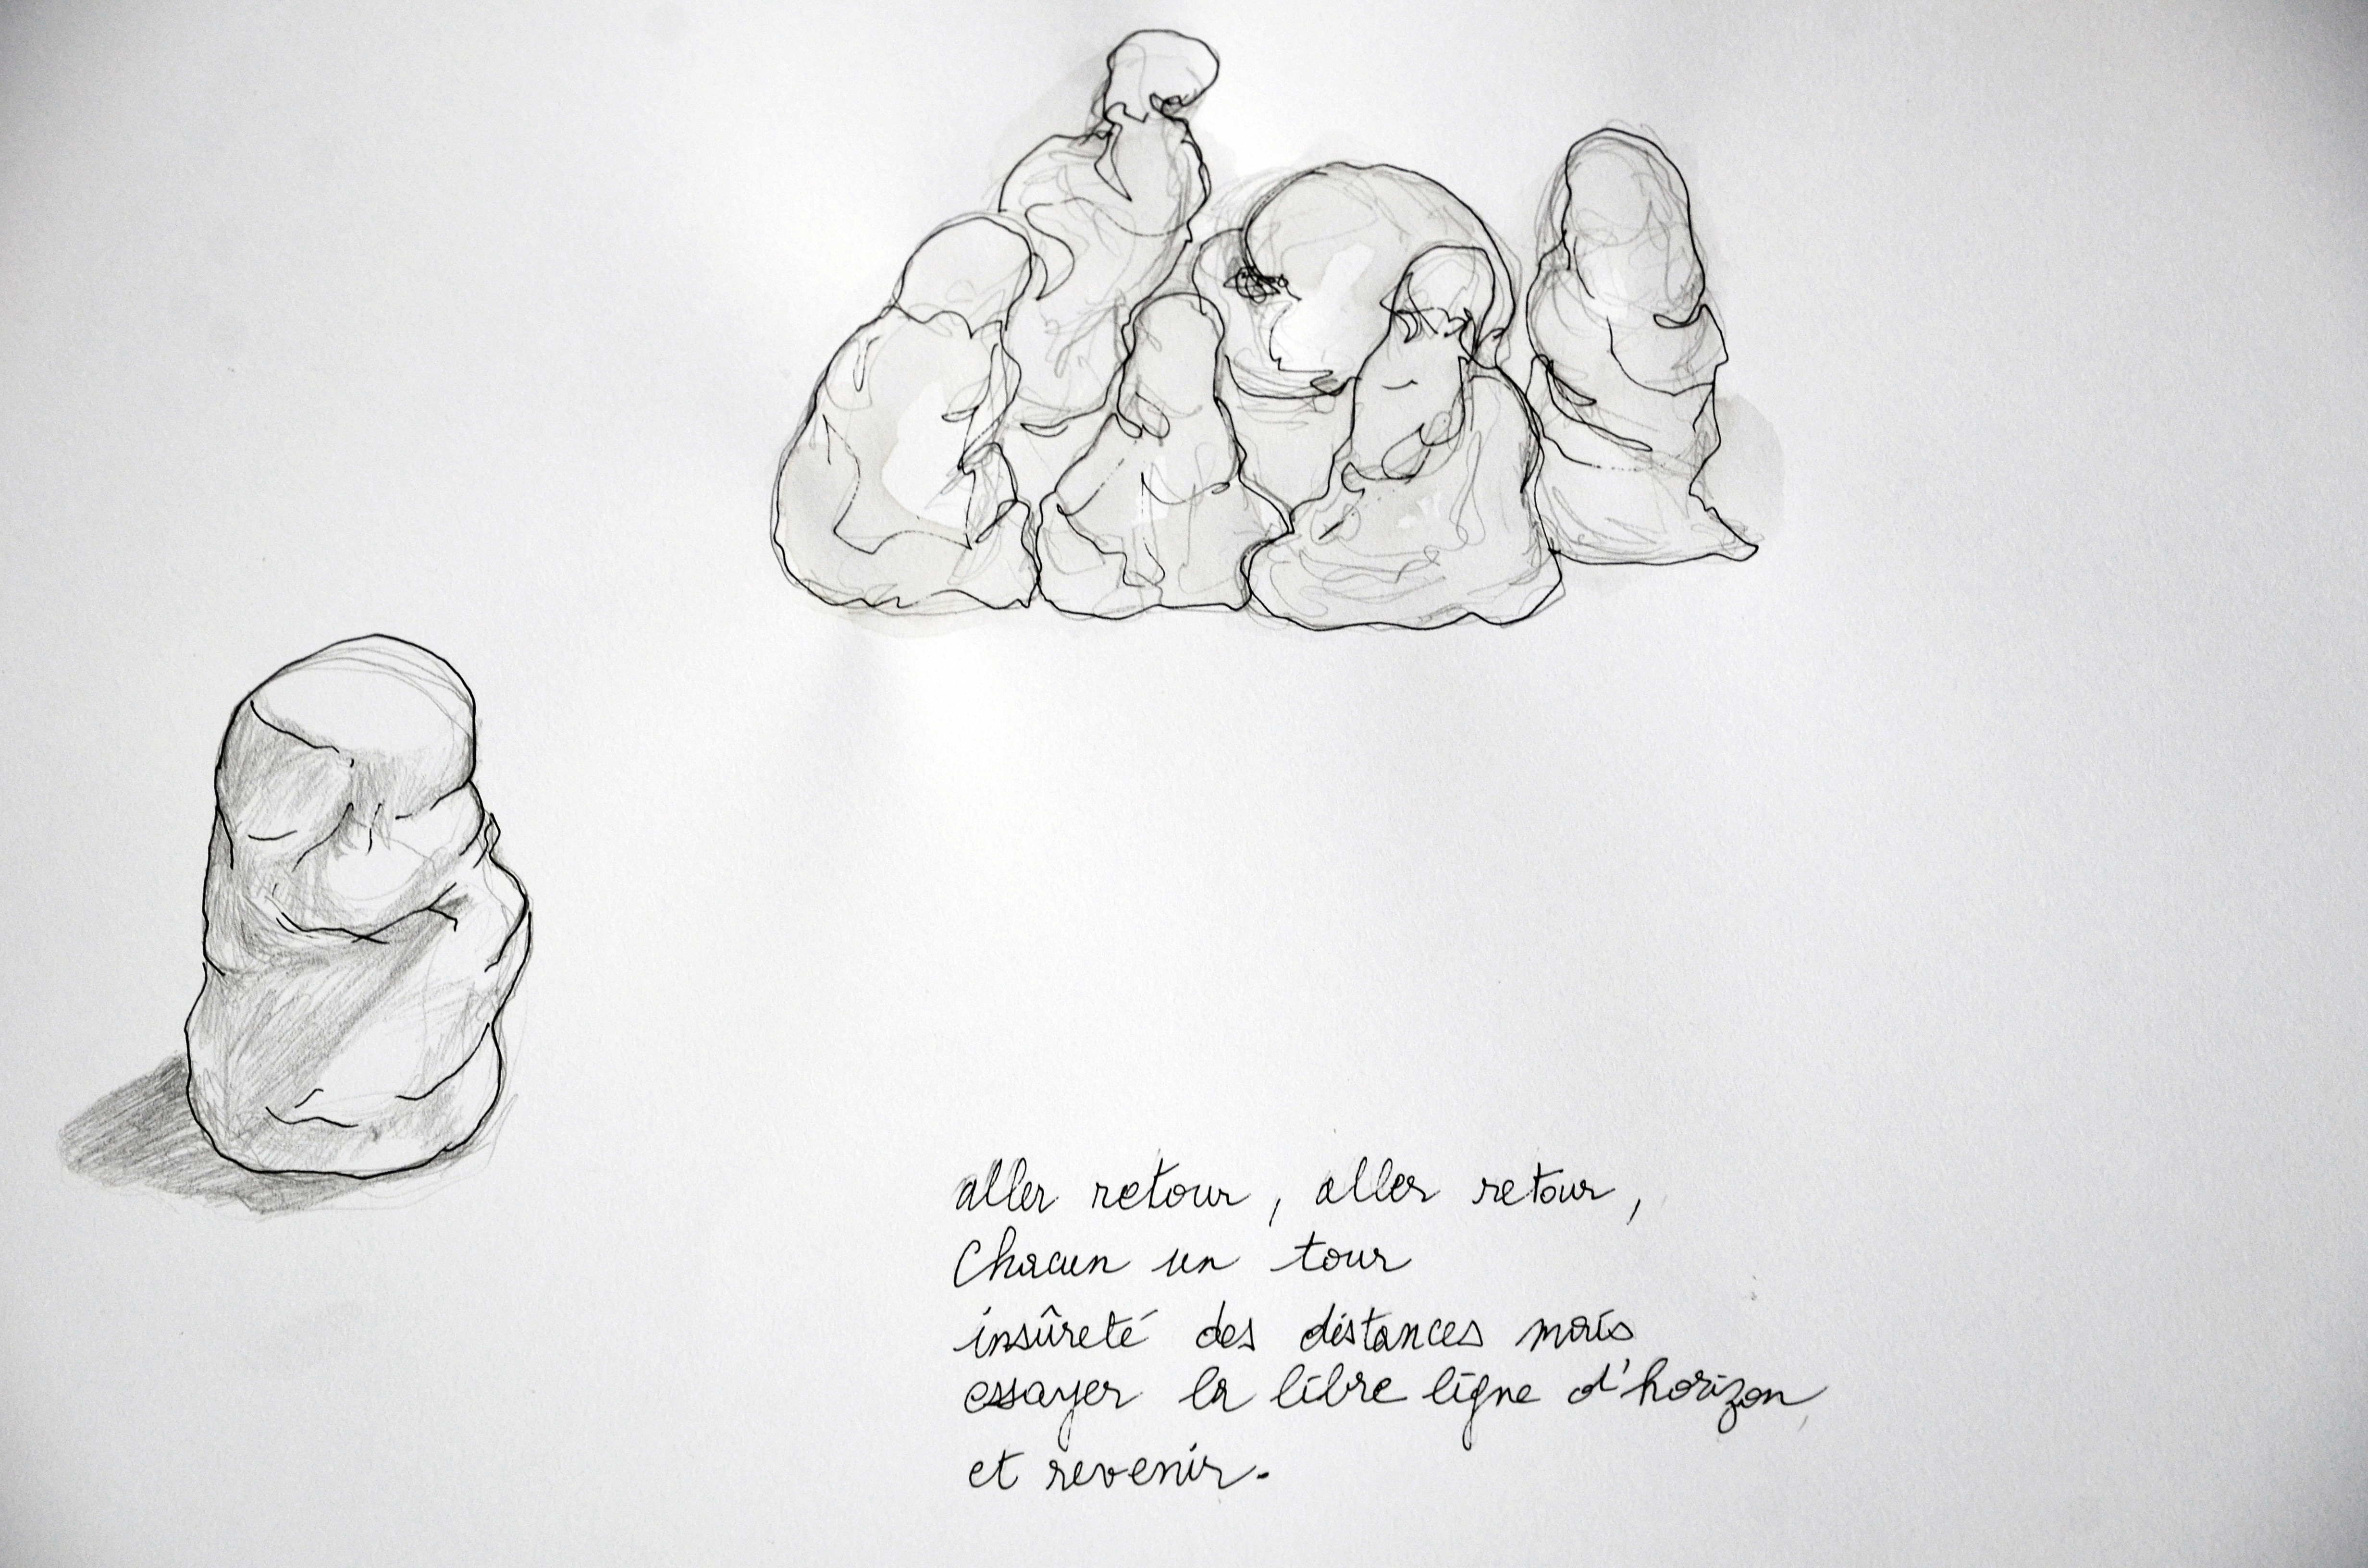 aller retour, aller retour,
Chacun un tour
insûreté des distances mais
essayer la libre ligne d'horizon
et revenir.